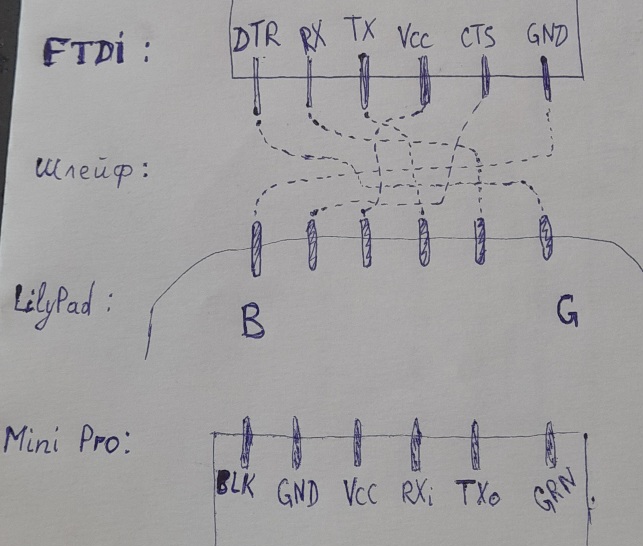 FTDi : DTR RX TX Vcc CTS GND
Шлейф:
LilyPad :
B G
Mini Pro:
BLK GND Vcc RXi TXo GRN